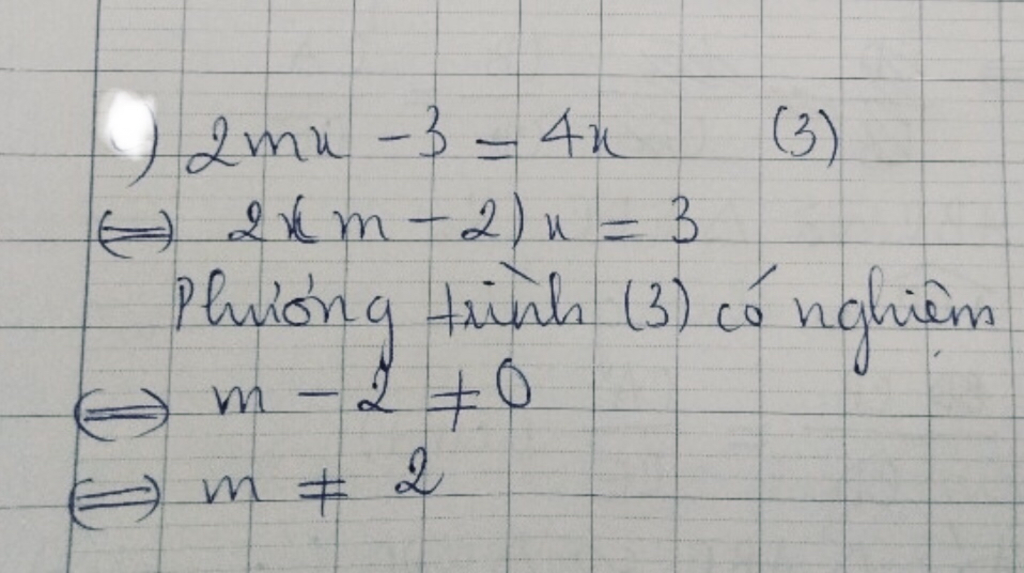 ) 2mx - 3 = 4x (3)
⇔ 2(m - 2)x = 3
Phương trình (3) có nghiệm
⇔ m - 2 ≠ 0
⇔ m ≠ 2